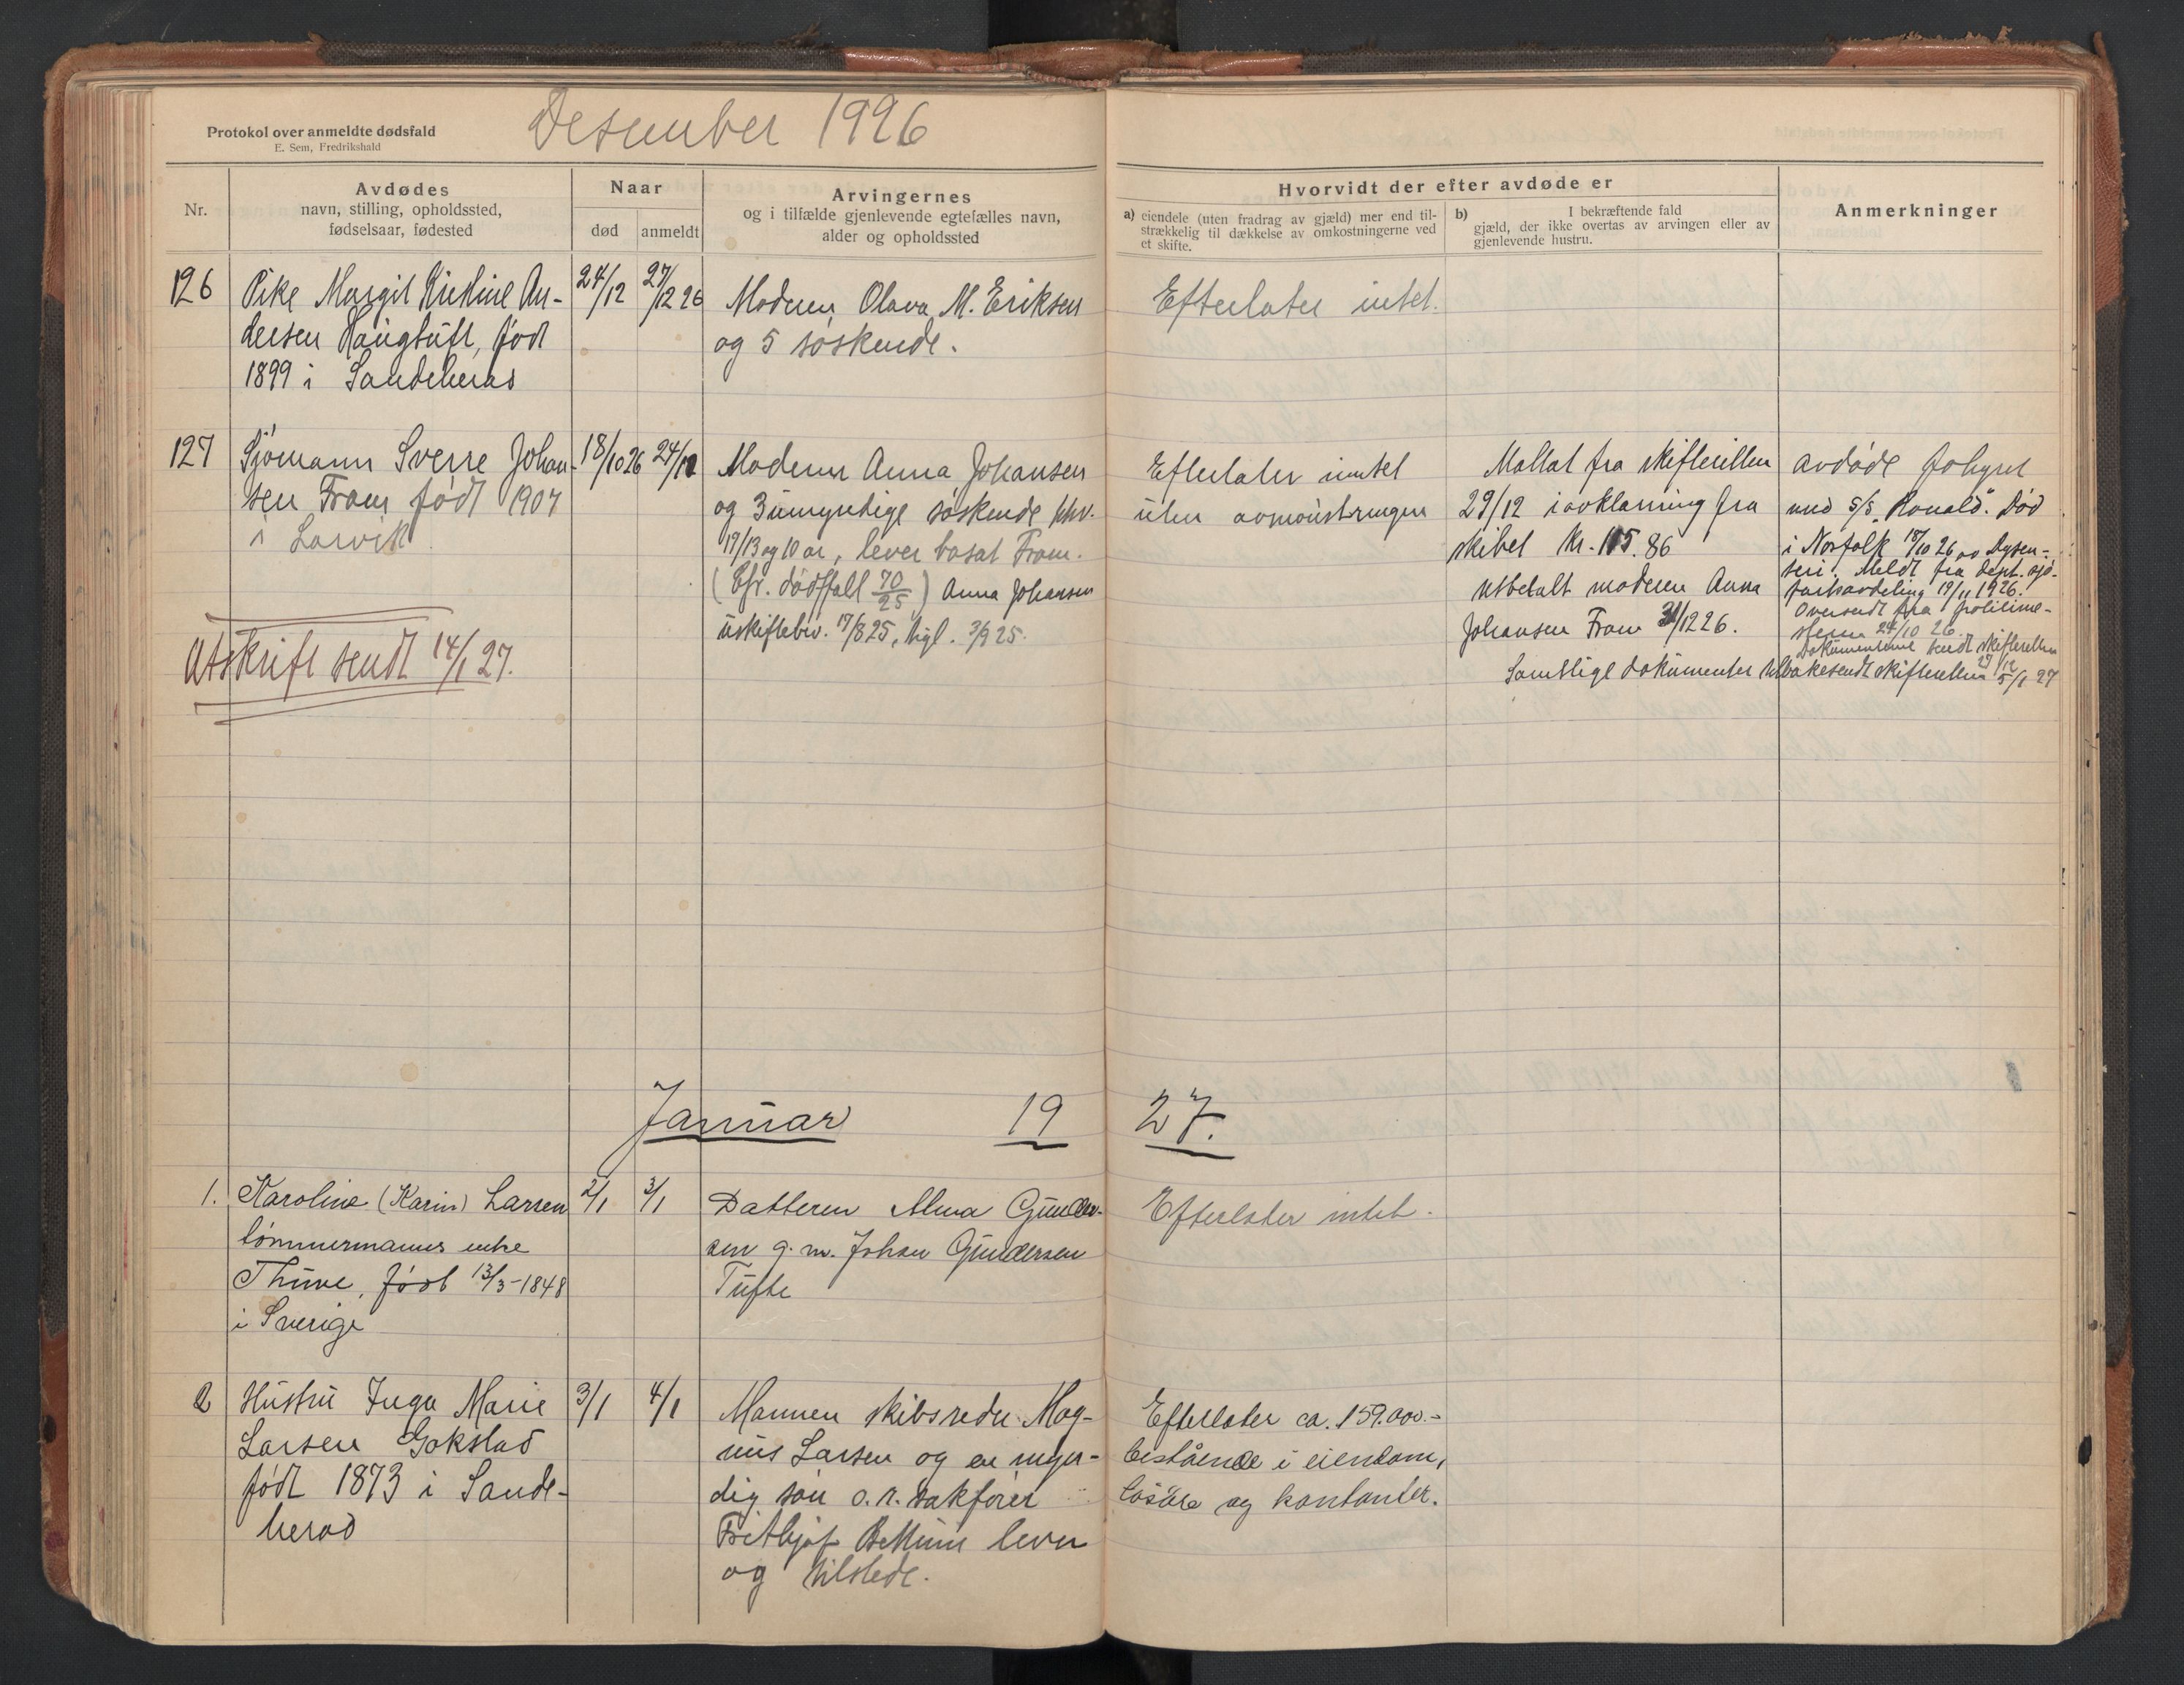 Protokol over anmeldte dødsfald
E. Sem, Fredrikshald
Desember 1926
Nr.
Avdødes
navn, stilling, opholdssted,
fødselsaar, fødested
Naar
død
anmeldt
Arvingernes
og i tilfælde gjenlevende egtefælles navn,
alder og opholdssted
Hvorvidt der efter avdøde er
a) eiendele (uten fradrag av gjæld) mer end til-
strækkelig til dækkelse av omkostningerne ved
et skifte.
b) I bekræftende fald
gjæld, der ikke overtas av arvingen eller av
gjenlevende hustru.
Anmerkninger
126
Pike Margit Kristine An-
dersen Haugtuft, født
1899 i Sandeherad
24/12
27/12 26
Moderen Olava M. Eriksen
og 5 søskende.
Efterlater intet.
127
Sjømann Sverre Johan-
sen Fram født 1907
i Larvik
18/10 26
24/12
Moderen Anna Johansen
og 3 umyndige søskende hhv.
17/13 og 10 år, lever bosat Fram.
(Cfr. dødsfall 70/25) Anna Johansen
uskiftebev. 17/8 25, tgl. 3/9 25.
Efterlater intet
uten avmønstringen
Mottat fra skifteretten
29/12 i avklarning fra
skibet kr. 105.86
utbetalt moderen Anna
Johansen Fram 31/12 26.
Samtlige dokumenter tilbakesendt skifteretten 5/1 27
avdøde forhyret
med s/s "Ronald". Død
i Norfolk 18/10 26 av Dysen-
teri. Meldt fra dept. sjø-
fartsavdeling 19/11 1926.
Oversendt fra politime-
steren 24/10 26.
Dokumentene sendt skifteretten
29/12
Utskrift sendt 14/1 27.
Januar 19 27.
1.
Karoline (Karin) Larsen
tømmermanns enke
Thune, født 13/3-1848
i Sverige
2/1
3/1
Datteren Alma Gunder-
sen g. m. Johan Gundersen
Tufte
Efterlater intet.
2
Hustru Inga Marie
Larsen Gokstad
født 1873 i Sande-
herad
3/1
4/1
Mannen skibsreder Mag-
nus Larsen og en myn-
dig søn o.r.sakfører
Frithjof Bettum lever
og tilstede.
Efterlater ca. 159.000.-
bestående i eiendom,
løsøre og kontanter.